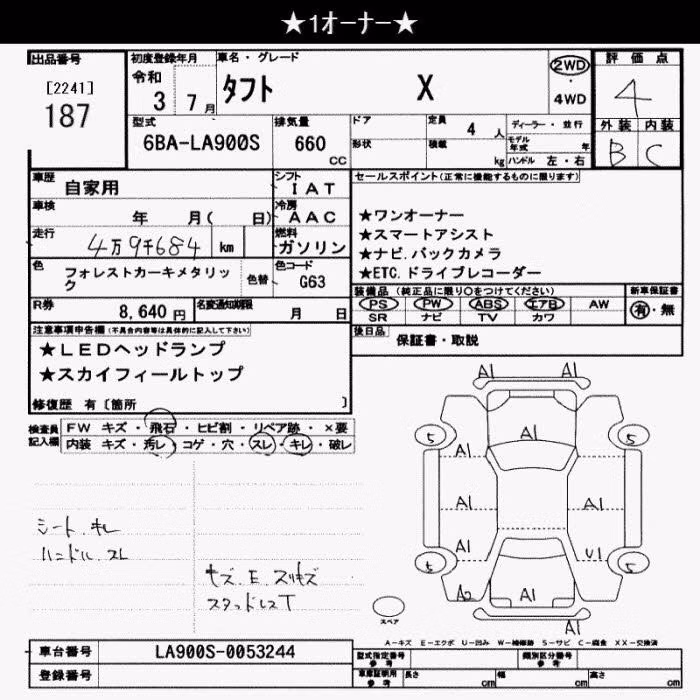 ★1オーナー★
出品番号
[2241]
187
初度登録年月
令和
3 7月
車名・グレード
タフト X
2WD
・
4WD
評価点
4
外装 内装
B C
型式
6BA-LA900S
排気量
660
CC
ドア
形状
定員
4人
積載
kg
ディーラー・並行
モデル年式 年
ハンドル 左・右
車歴
自家用
シフト
IAT
車検
年 月( 日)
冷房
AAC
走行
4万9千684 km
燃料
ガソリン
色
フォレストカーキメタリック
色替
色コード
G63
R券
8,640円
名変通知期限
月 日
セールスポイント(正常に機能するものに限ります)
★ワンオーナー
★スマートアシスト
★ナビ.バックカメラ
★ETC.ドライブレコーダー
装備品(純正品に限り○をつけてください)
PS PW ABS エアB AW
SR ナビ TV カワ
新車保証書
有・無
後日品
保証書・取説
注意事項申告欄(不具合内容等は具体的に記入して下さい)
★LEDヘッドランプ
★スカイフィールトップ
修復歴 有〔箇所 〕
検査員記入欄
FW キズ・飛石・ヒビ割・リペア跡・×要
内装 キズ・汚レ・コゲ・穴・スレ・キレ・破レ
シート.キレ
ハンドル.スレ
キズ.E.スリキズ
スタッドレスT
A1 A1
5 A1 5
A1
A1 A1
A1 U1
5 5
A2 A1
A1
スペア
A-キズ E-エクボ U-凹み W-補修跡 S-サビ C-腐食 XX-交換済
車台番号
LA900S-0053244
登録番号
型式指定番号
参考
類別区分番号
参考
車庫証明用
参考
長さ cm
幅 cm
高さ cm